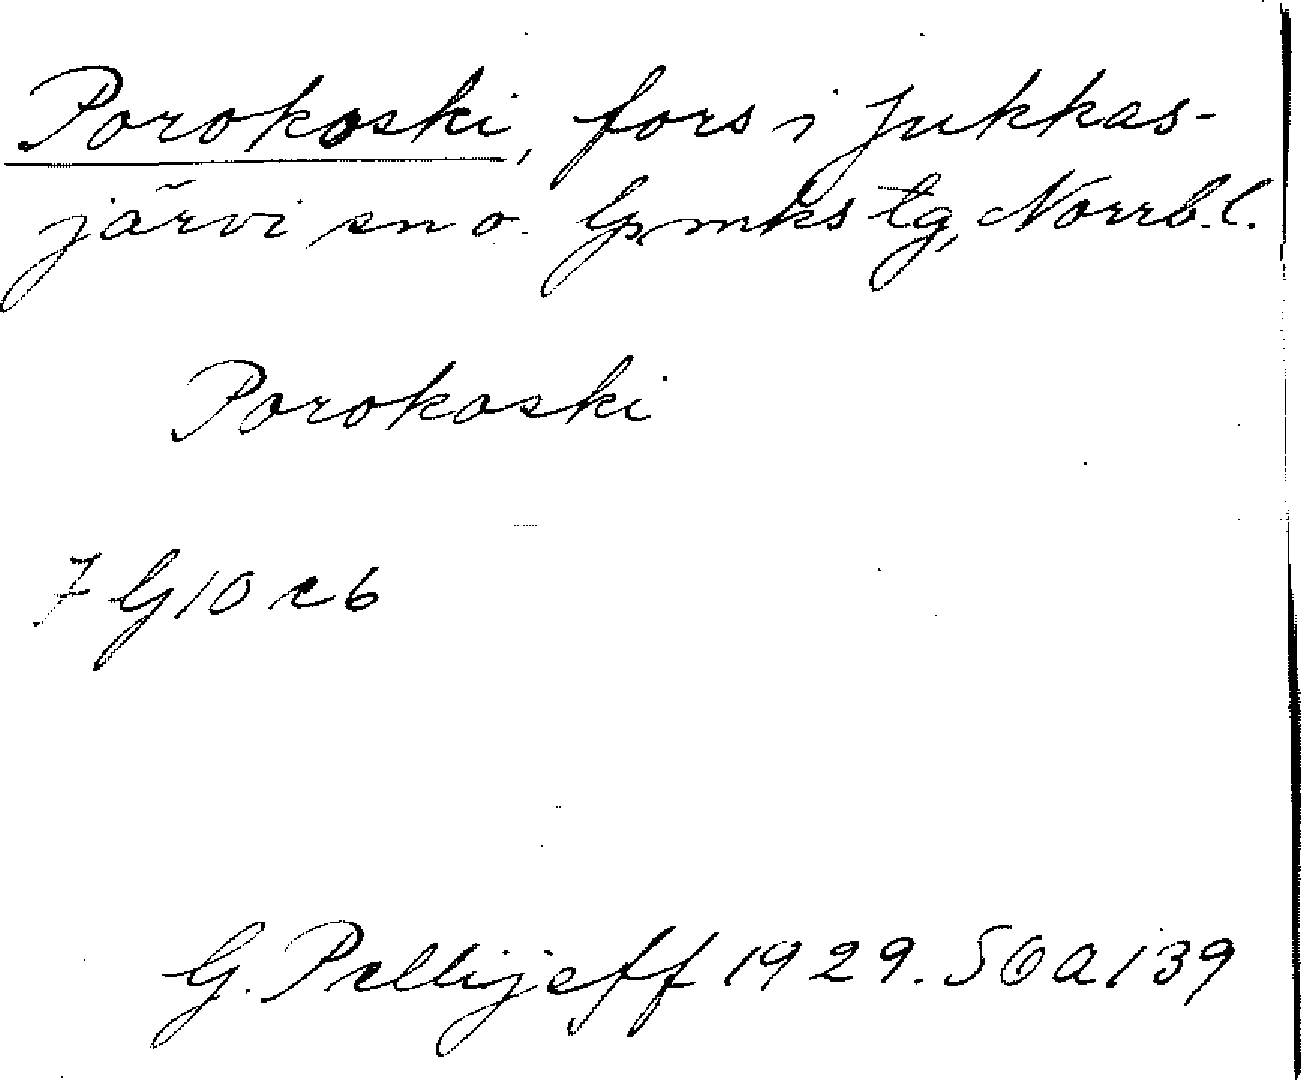 Porokoski, fors i Jukkas-
järvi sn o. lpmks tg, Norrb. l.
Porokoski
7 G 10 c b
G. Pellijeff 1929. SOA 139